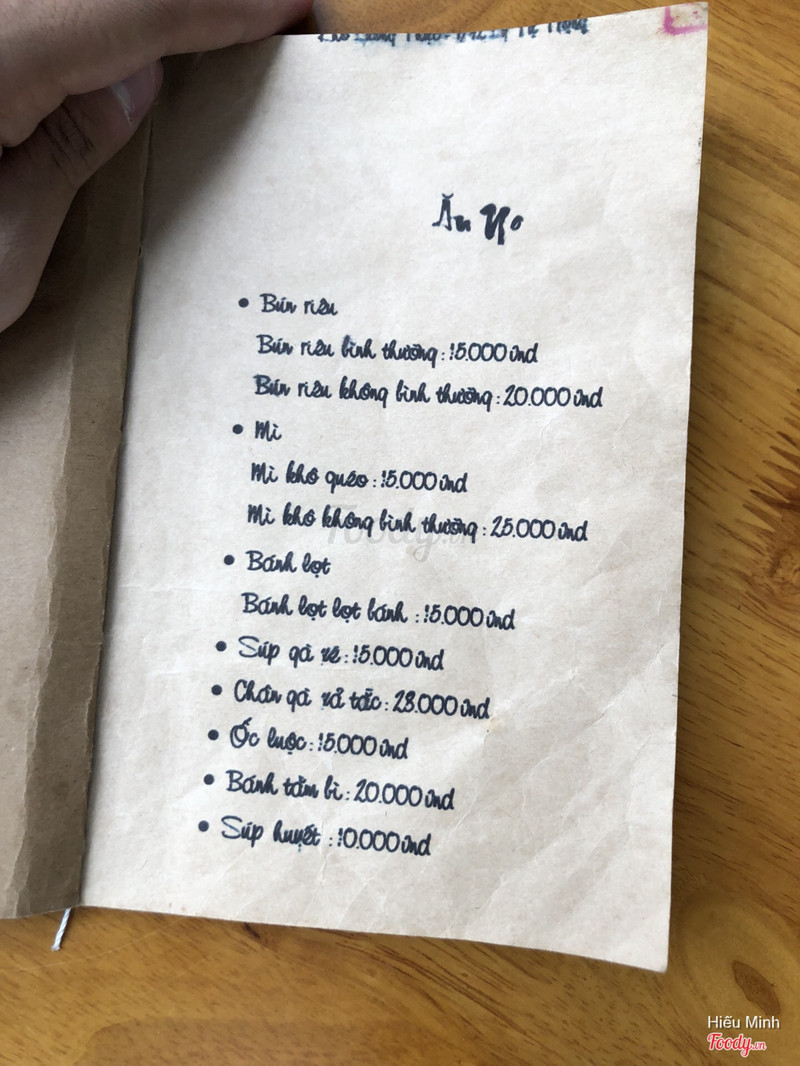 Ăn No
• Bún riêu
Bún riêu bình thường : 15.000 vnd
Bún riêu không bình thường : 20.000 vnd
• Mì
Mì khô quéo : 15.000 vnd
Mì khô không bình thường : 25.000 vnd
• Bánh lọt
Bánh lọt lọt bánh : 15.000 vnd
• Súp gà xé : 15.000 vnd
• Chân gà xả tắc : 28.000 vnd
• Ốc luộc : 15.000 vnd
• Bánh tằm bì : 20.000 vnd
• Súp huyết : 10.000 vnd
Foody.vn
Hiếu Minh
Foody.vn